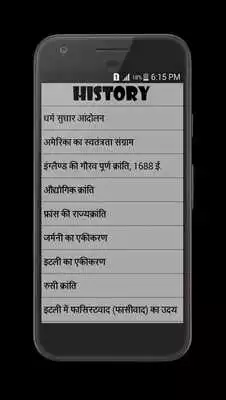 18% 6:15 PM
HISTORY
धर्म सुधार आंदोलन
अमेरिका का स्वतंत्रता संग्राम
इंग्लैण्ड की गौरव पूर्ण क्रांति, 1688 ई.
औद्योगिक क्रांति
फ्रांस की राज्यक्रांति
जर्मनी का एकीकरण
इटली का एकीकरण
रुसी क्रांति
इटली में फासिस्टवाद (फासीवाद) का उदय